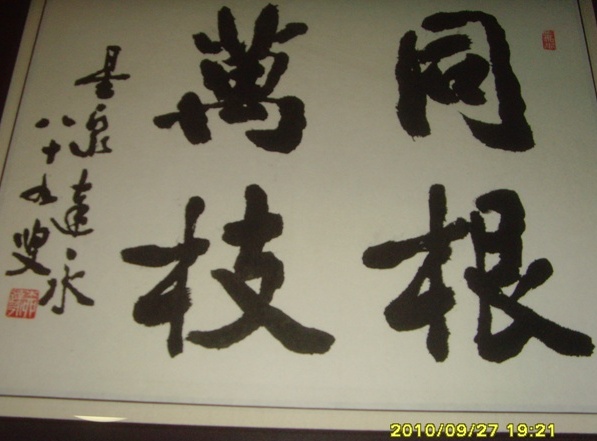 同根
萬枝
星泉達永
八十九叟
2010/09/27 19:21